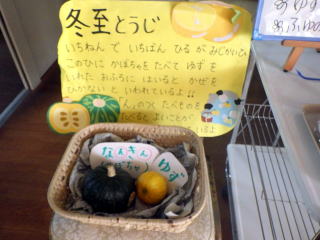 冬至とうじ
いちねん で いちばん ひる が みじかいひ
このひに かぼちゃを たべて ゆず を
いれた おふろに はいると かぜを
ひかない と いわれているよ!!
のつく たべものを
たべると よいことが
あるよ
なんきん
かぼちゃ
ゆず